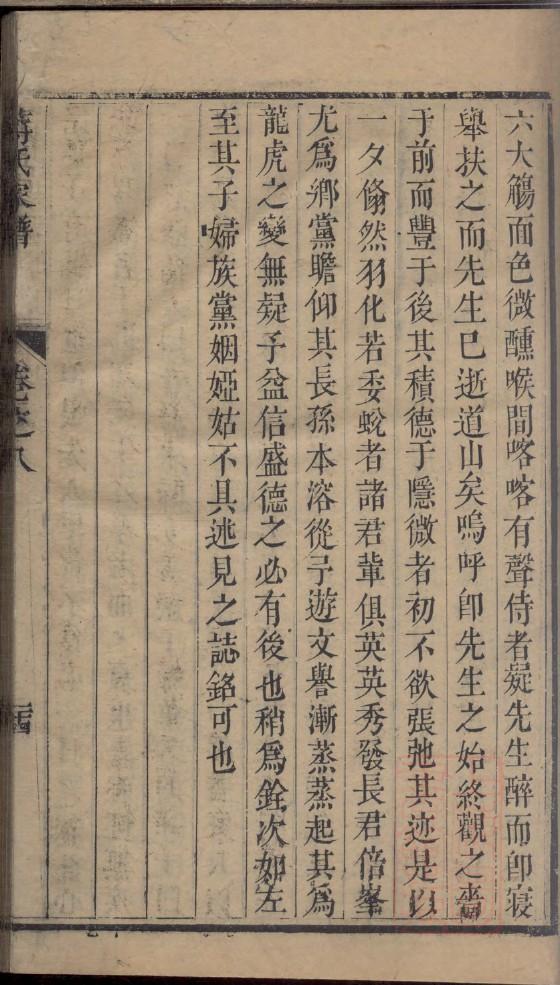 六大觴面色微醺喉間喀喀有聲侍者疑先生醉而卽寢
舉扶之而先生已逝道山矣嗚呼卽先生之始終觀之嗇
于前而豐于後其積德于隱微者初不欲張弛其迹是以
一夕翛然羽化若委蛻者諸君軰俱英英秀發長君倍峯
尤爲鄉黨瞻仰其長孫本溶從予遊文譽漸蒸蒸起其爲
龍虎之變無疑予益信盛德之必有後也稍爲銓次如左
至其子婦族黨姻婭姑不具述見之誌銘可也
氏家譜
卷之八
二十四